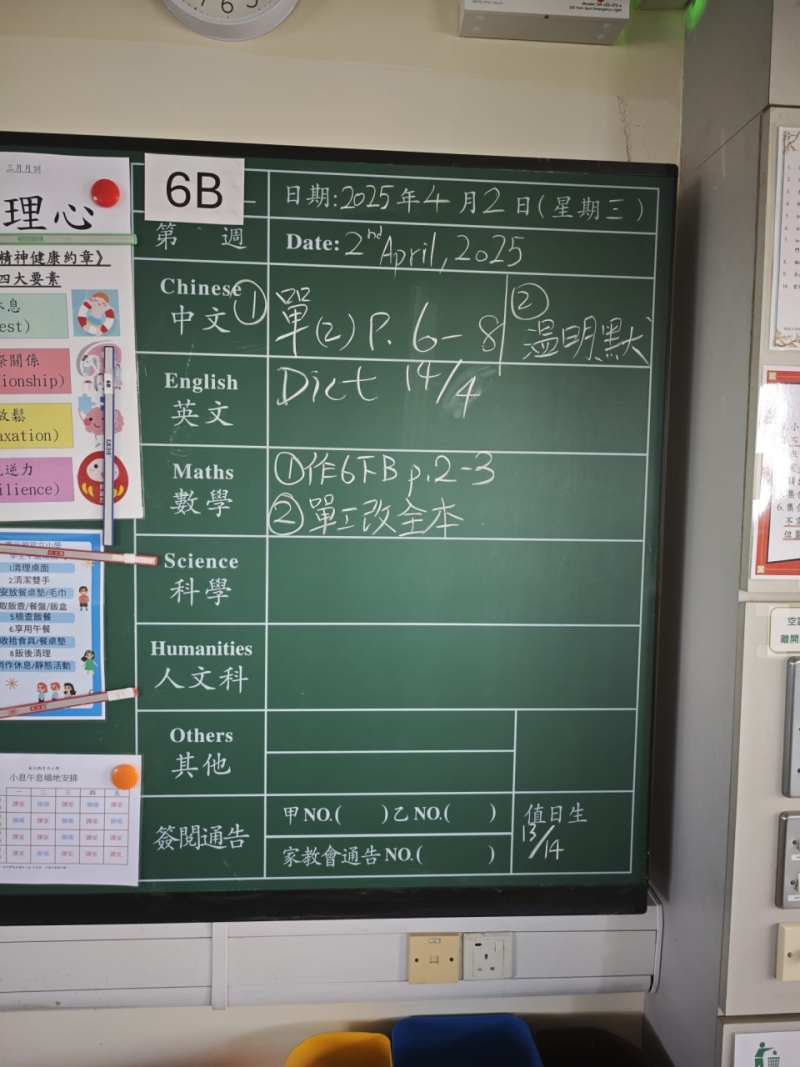 三月月訓
理心
精神健康約章》
四大要素
休息
est)
祭關係
ionship)
放鬆
axation)
逆力
ilience)
1.清理桌面
2.清潔雙手
安放餐桌墊/毛巾
取飯壺/餐盤/飯盒
5.檢查飯餐
6.享用午餐
收拾食具/餐桌墊
8.飯後清理
作休息/靜態活動
小息午息場地安排
一 二 三 四 五
6B
日期:2025年4月2日(星期三)
第 週
Date: 2nd April, 2025
Chinese
中文
① 單(2) P. 6-8
② 溫明默
English
英文
Dict 14/4
Maths
數學
①作6下B p.2-3
②單工改全本
Science
科學
Humanities
人文科
Others
其他
簽閱通告
甲 NO.( )乙 NO.( )
家教會通告 NO.( )
值日生
13/14
空調
離開